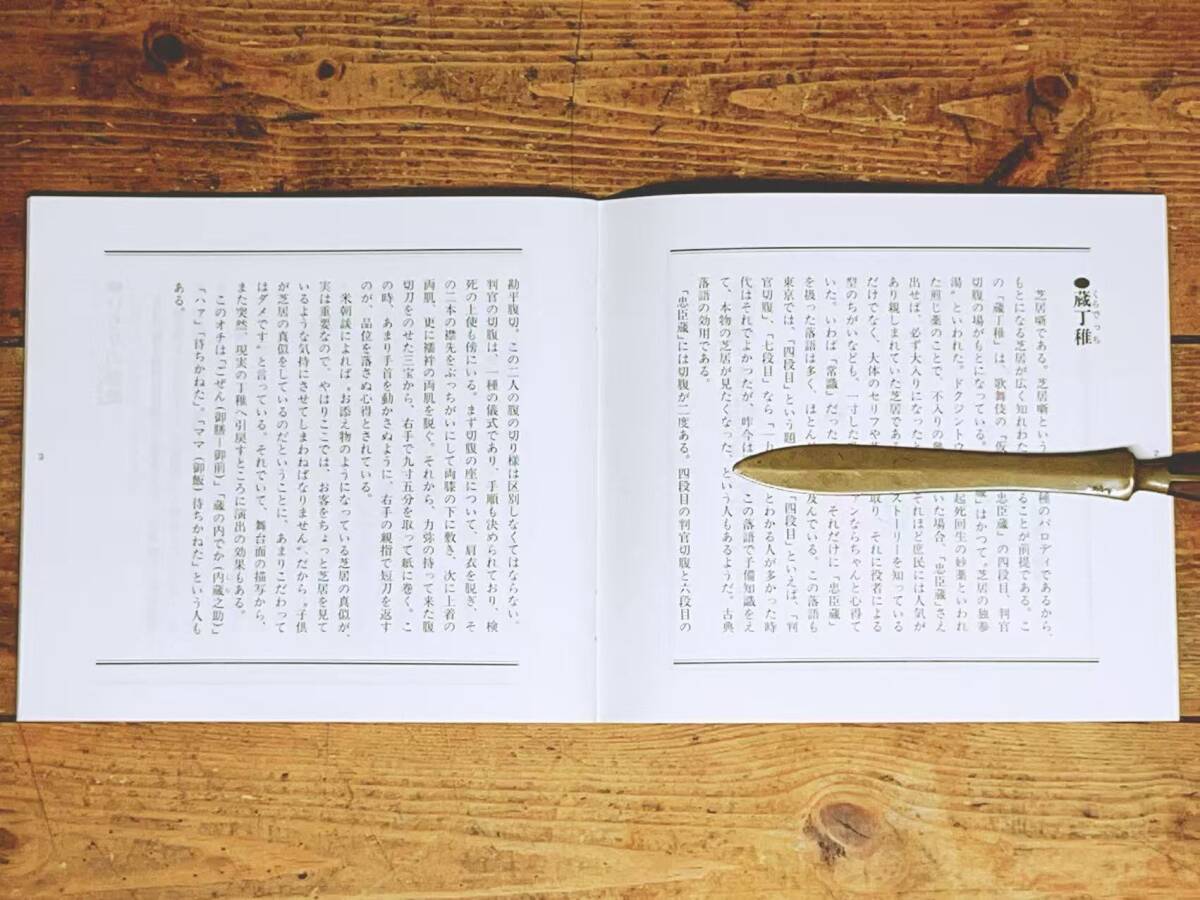 2
くらでっち
●蔵丁稚
芝居噺である。芝居噺という 種のパロディであるから、
もとになる芝居が広く知れわた ることが前提である。こ
の「蔵丁稚」は、歌舞伎の「仮 忠臣蔵」の四段目、判官
切腹の場がもとになっている。 蔵」はかつて〝芝居の独参
湯〟といわれた。ドクジントウ 起死回生の妙薬といわれ
た煎じ薬のことで、不入りの いた場合、「忠臣蔵」さえ
出せば、必ず大入りになった それほど庶民には人気が
あり親しまれていた芝居であ ストーリーを知っている
だけでなく、大体のセリフや 取り、それに役者による
型のちがいなども、一寸した ァンならちゃんと心得て
いた。いわば「常識」だった それだけに「忠臣蔵」
を扱った落語は多く、ほとん 及んでいる。この落語も
東京では、「四段目」という題 「四段目」といえば、「判
官切腹」、「七段目」なら「一力 とわかる人が多かった時
代はそれでよかったが、昨今は この落語で予備知識をえ
て、本物の芝居が見たくなった、という人もあるようだ。古典
落語の効用である。
「忠臣蔵」には切腹が二度ある。四段目の判官切腹と六段目の
勘平腹切。この二人の腹の切り様は区別しなくてはならない。
判官の切腹は、一種の儀式であり、手順も決められており、検
死の上使も傍にいる。まず切腹の座について、肩衣を脱ぎ、そ
の二本の襟先をぶっちがいにして両膝の下に敷き、次に上着の
両肌、更に襦袢の両肌を脱ぐ。それから、力弥の持って来た腹
切刀をのせた三宝から、右手で九寸五分を取って紙に巻く。こ
の時、あまり手首を動かさぬように、右手の親指で短刀を返す
のが、品位を落さぬ心得とされている。
米朝談によれば、〝お添え物のようになっている芝居の真似が、
実は重要なので、やはりここでは、お客をちょっと芝居を見て
いるような気持にさせてしまわねばなりません〟だから〝子供
が芝居の真似をしているのだということに、あまりこだわって
はダメです〟と言っている。それでいて、舞台面の描写から、
また突然、現実の丁稚へ引戻すところに演出の効果もある。
このオチは「ごぜん(御膳―御前)」「蔵の内でか(内蔵之助)」
「ハァ」「待ちかねた」。「ママ(御飯)待ちかねた」という人も
ある。
3